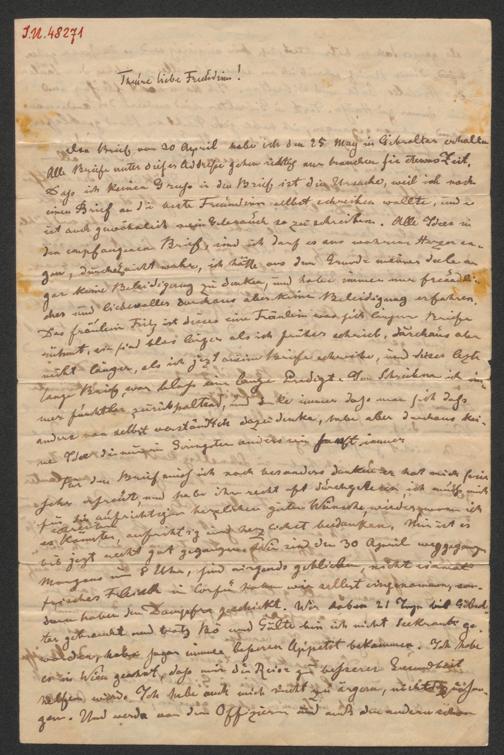 I.N. 48271
Theure liebe Freundin!
Brief vom 30 April habe ich den 25 May in Gibraltar erhalten
Alle Briefe unter dieser Addresse gehen richtig nur brauchen sie etwas Zeit,
Dass ich keinen Gruss in den Brief ist die Ursache, weil ich noch
einen Brief an die Freundinn selbst schreiben wollte, und es
ist auch gewöhnlich mein so zu schreiben. Alle Idee in
den empfangenen Brief, sind ich darf es aus wahrem Herzen sa-
gen, durchdacht wahr, ich hätte aus dem Grunde meiner Seele an
gar keine Beleidigung zu denken, und habe immer nur freundli-
ches und liebevolles durchaus aber keine Beleidigung erfahren.
Das fräulein Fritz ist dieses eine Fräulein was sich langer Briefe
rühmt, sie sind alles länger als ich früher schrieb, durchaus aber
nicht länger, als ich jezt meine Briefe schreibe, und dieses lezte
lange Brief war bloss eine lange Predigt. Im Schreiben ich im-
mer zurückhaltend, und denke immer dass man sich das
andere von selbst verständlich dazu denke, habe aber durchaus kei-
ne Idee die mir im Geringsten anders immer
Für den Brief muss ich noch besonders danken er hat mich
sehr erfreut und habe ihn recht oft durchgelesen, ich muss mich
für die aufrichtigen herzlichen guten Wünsche
es könnte, aufrichtig und herzlichst bedanken, Mir ist es
bis jezt recht gut gegangen, wir sind den 30 April weggegangen
Morgens um 8 Uhr, sind nirgends geblieben, nicht einmal
frisches Fleisch in Corfu haben wir selbst eingenommen, son-
dern haben den Dampfer geschickt. Wir haben 21 Tage bis Gibral-
tar gebraucht und trotz Bö und Gülte bin ich nicht Seekrank ge-
worden, habe sogar immer besseren Appetit bekommen. Ich habe
es in Wien geahnt, dass mir die Reise zu besserer Gesundheit
helfen würde. Ich habe auch mich nicht zu ärgern, nichts
gen. Und werde von den Offizieren und auch den anderen schon